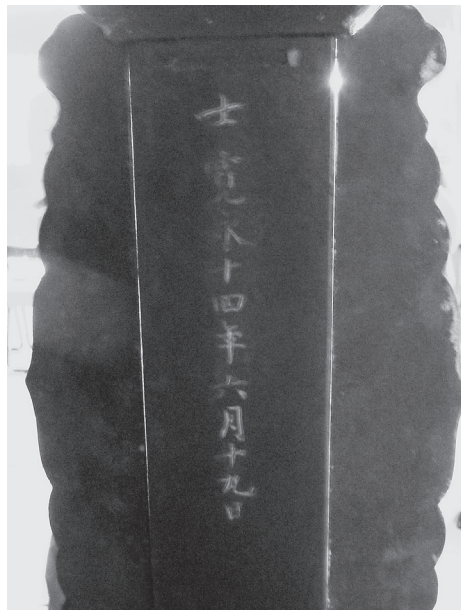 士 寛永十四年六月十九日